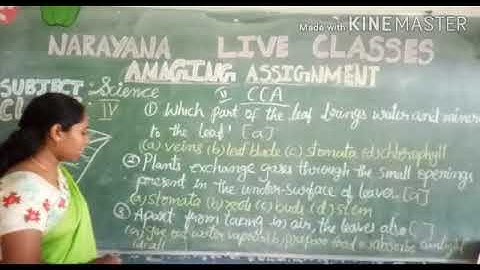 Made with KINEMASTER
NARAYANA LIVE CLASSES
AMAGING ASSIGNMENT
SUBJECT: Science
V) CCA
CL IV
① Which part of the leaf brings water and miner
to the leaf? [a]
(a) veins (b) leaf blade (c) stomata (d) chlorophyll
② Plants exchange gases through the small openings
present in the under-surface of leaves. [a]
(a) stomata (b) roots (c) buds (d) stem
③ Apart from taking in air, the leaves also [ ]
(a) give out water vapour (b) prepare food (c) absorbe sunlight
(d) all